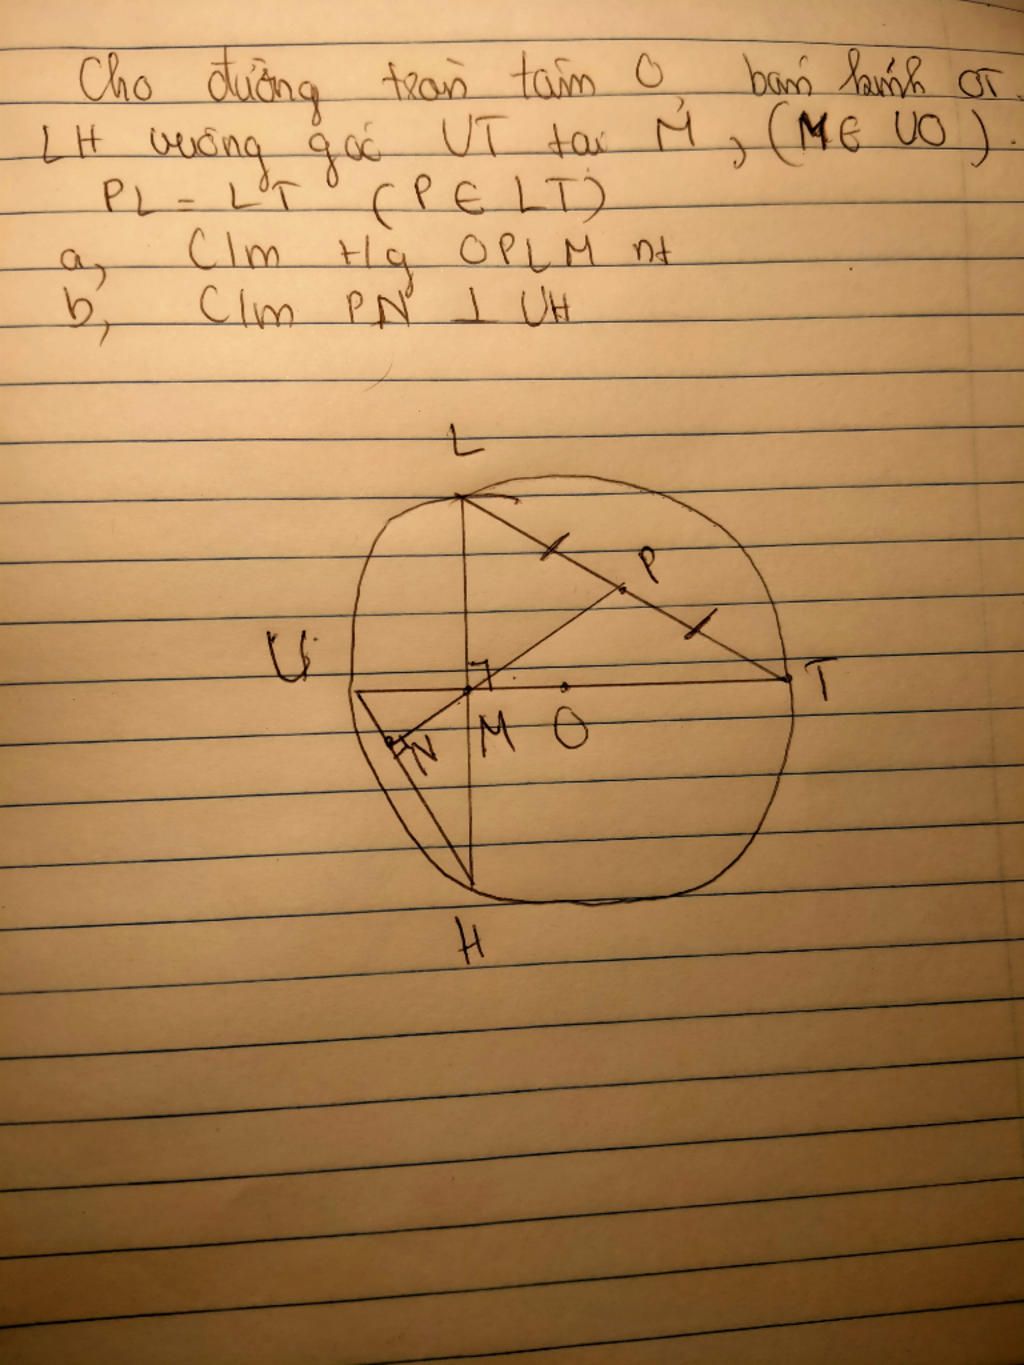 Cho đường tròn tâm O, bán kính OT.
LH vuông góc UT tại M, (M ∈ UO).
PL = LT (P ∈ LT)
a, C/m t/g OPLM nt
b, C/m PN ⊥ UH
L
P
U
T
N M O
H